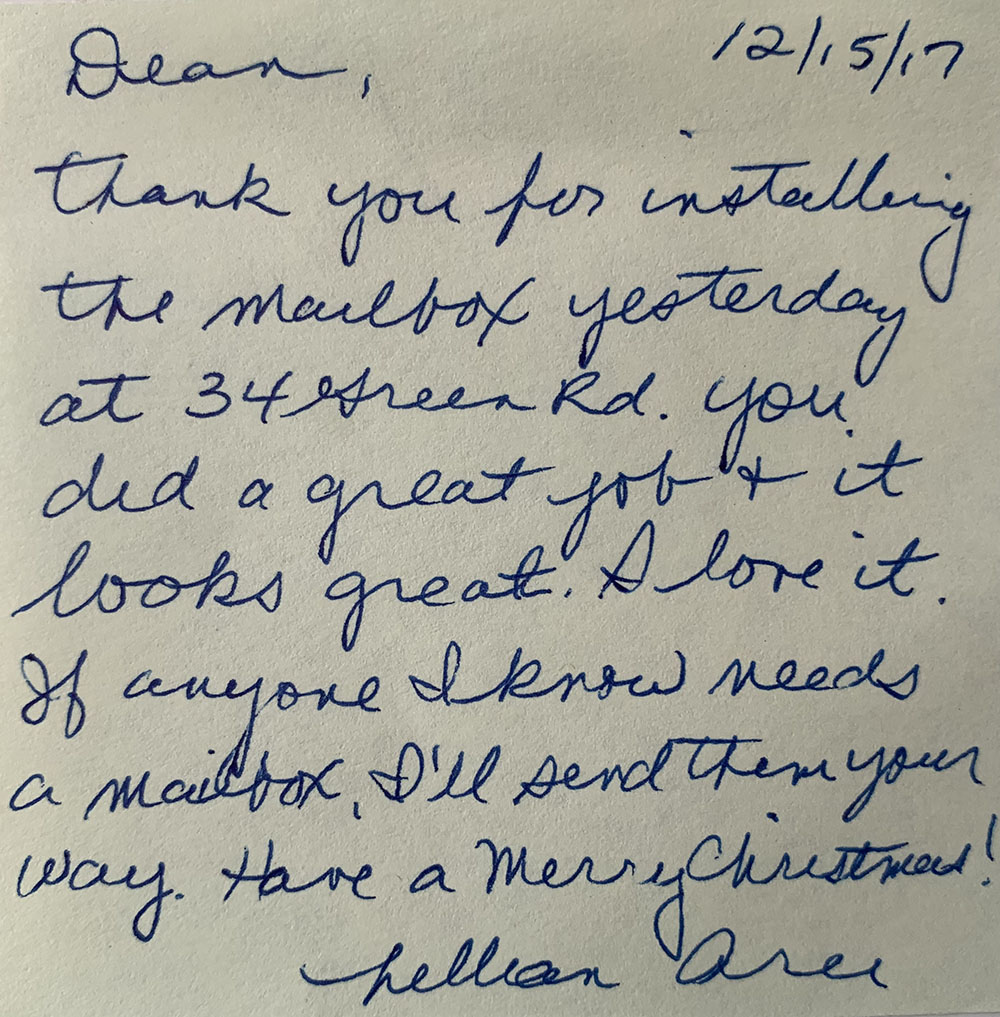 Dean, 12/15/17
thank you for installing
the mailbox yesterday
at 34 Green Rd. you
did a great job & it
looks great. I love it.
If anyone I know needs
a mailbox, I'll send them your
way. Have a Merry Christmas!